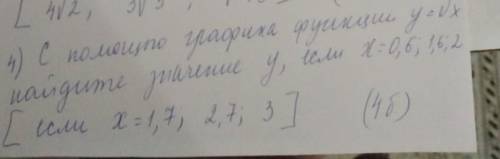 [ 4√2, 3√3
4) С помощью графика функции y=√x
найдите значение y, если x=0,5; 1,5; 2
[ если x=1,7; 2,7; 3 ] (4б)